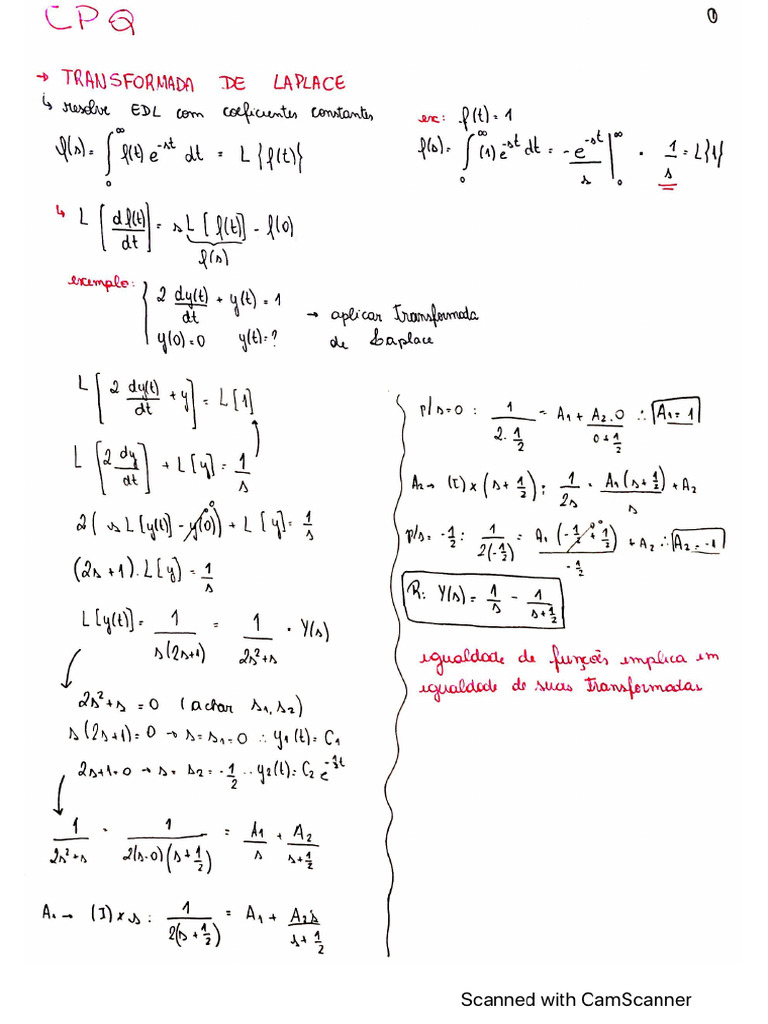 CPQ
1
→ TRANSFORMADA DE LAPLACE
↳ resolve EDL com coeficientes constantes
f(s) = ∫₀^∞ f(t) e^{-st} dt = L{f(t)}
ex: f(t) = 1
f(s) = ∫₀^∞ (1) e^{-st} dt = -e^{-st}/s |₀^∞ = 1/s = L{1}
↳ L[df(t)/dt] = sL[f(t)] - f(0)
f(s)
exemplo: { 2 dy(t)/dt + y(t) = 1
y(0) = 0 y(t) = ?
→ aplicar Transformada
de Laplace
L[2 dy(t)/dt + y] = L[1]
L[2 dy/dt] + L[y] = 1/s
2(sL[y(t)] - y(0)) + L[y] = 1/s
0
(2s+1).L[y] = 1/s
L[y(t)] = 1/s(2s+1) = 1/2s²+s = Y(s)
2s²+s = 0 (achar s₁, s₂)
s(2s+1) = 0 → s = s₁ = 0 ∴ y₁(t) = C₁
2s+1=0 → s = s₂ = -1/2 ∴ y₂(t) = C₂ e^{-1/2 t}
1/2s²+s = 1/2(s-0)(s+1/2) = A₁/s + A₂/s+1/2
A₁ → (I) x s: 1/2(s+1/2) = A₁ + A₂s/s+1/2
p/ s=0 : 1/2.1/2 = A₁ + A₂.0/0+1/2 ∴ A₁ = 1
A₂ → (I) x (s+1/2): 1/2s = A₁(s+1/2)/s + A₂
p/s = -1/2 : 1/2(-1/2) = A₁(-1/2+1/2)/-1/2 + A₂ ∴ A₂ = -1
0
R: Y(s) = 1/s - 1/s+1/2
igualdade de funções implica em
igualdade de suas Transformadas
Scanned with CamScanner